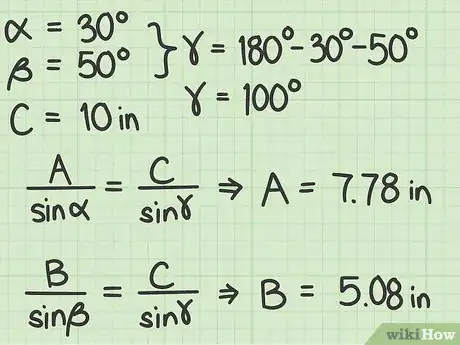 α = 30°
β = 50°
} γ = 180° - 30° - 50°
γ = 100°
C = 10 in
A/sinα = C/sinγ ⇒ A = 7.78 in
B/sinβ = C/sinγ ⇒ B = 5.08 in
wikiHow